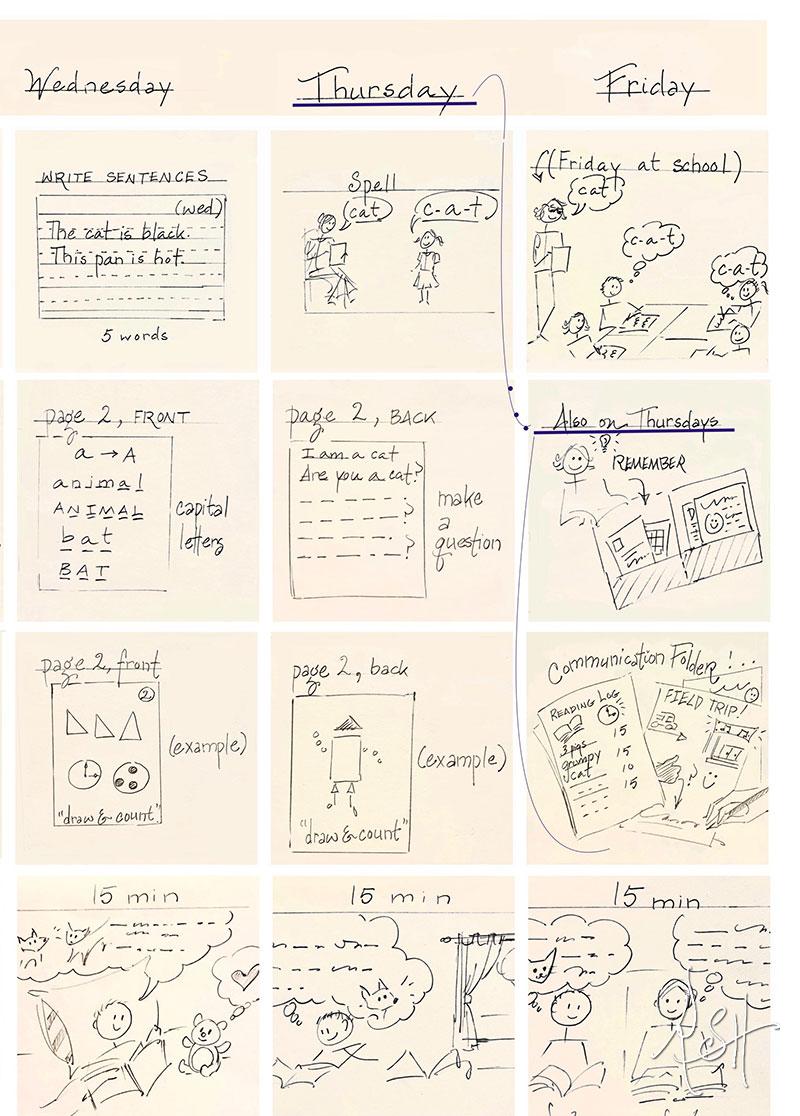 Wednesday
Thursday
Friday
WRITE SENTENCES
(wed)
The cat is black.
This pan is hot.
5 words
Spell
cat
c-a-t
(Friday at school)
cat
c-a-t
c-a-t
page 2, FRONT
a → A
animal
ANIMAL
bat
BAT
capital
letters
page 2, BACK
I am a cat
Are you a cat?
?
?
?
make
a
question
Also on Thursdays
REMEMBER
page 2, front
2
(example)
"draw & count"
page 2, back
(example)
"draw & count"
Communication Folder!..
READING LOG
15
3 pigs
15
grumpy
cat
10
15
FIELD TRIP!
?
15 min
15 min
15 min